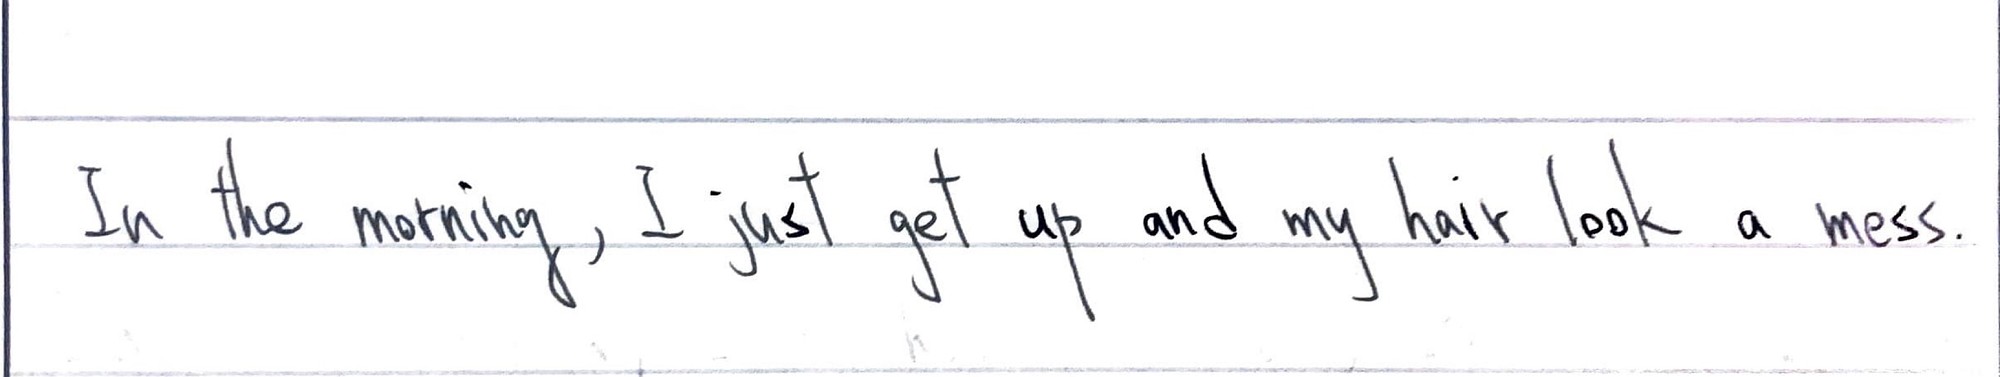 In the morning, I just get up and my hair look a mess.